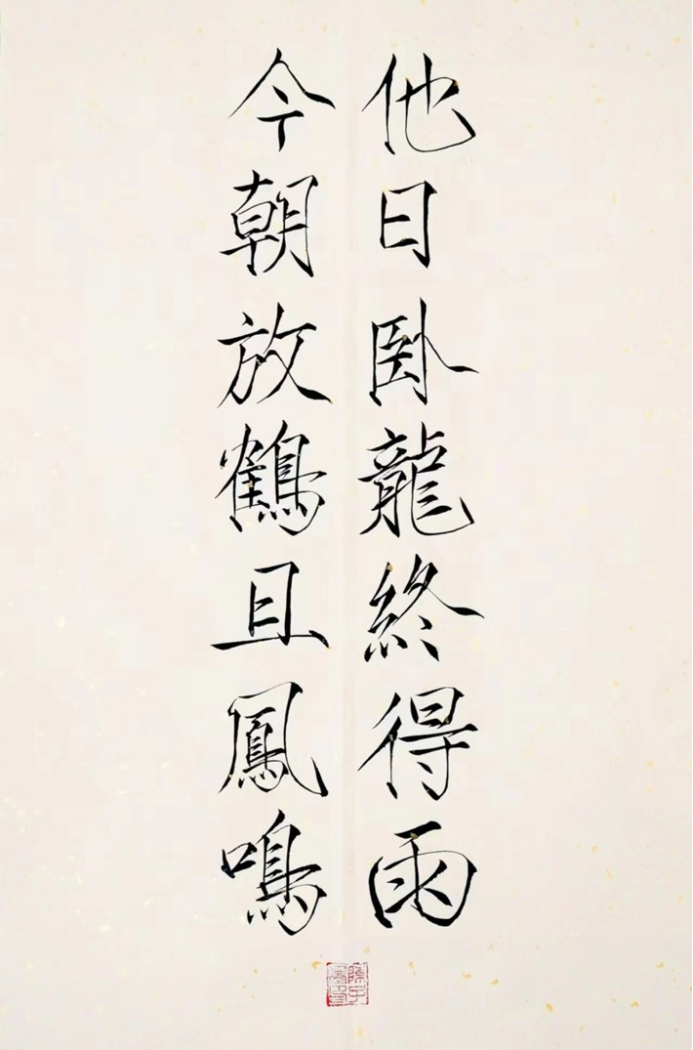 他日卧龍終得雨
今朝放鶴且鳳鳴